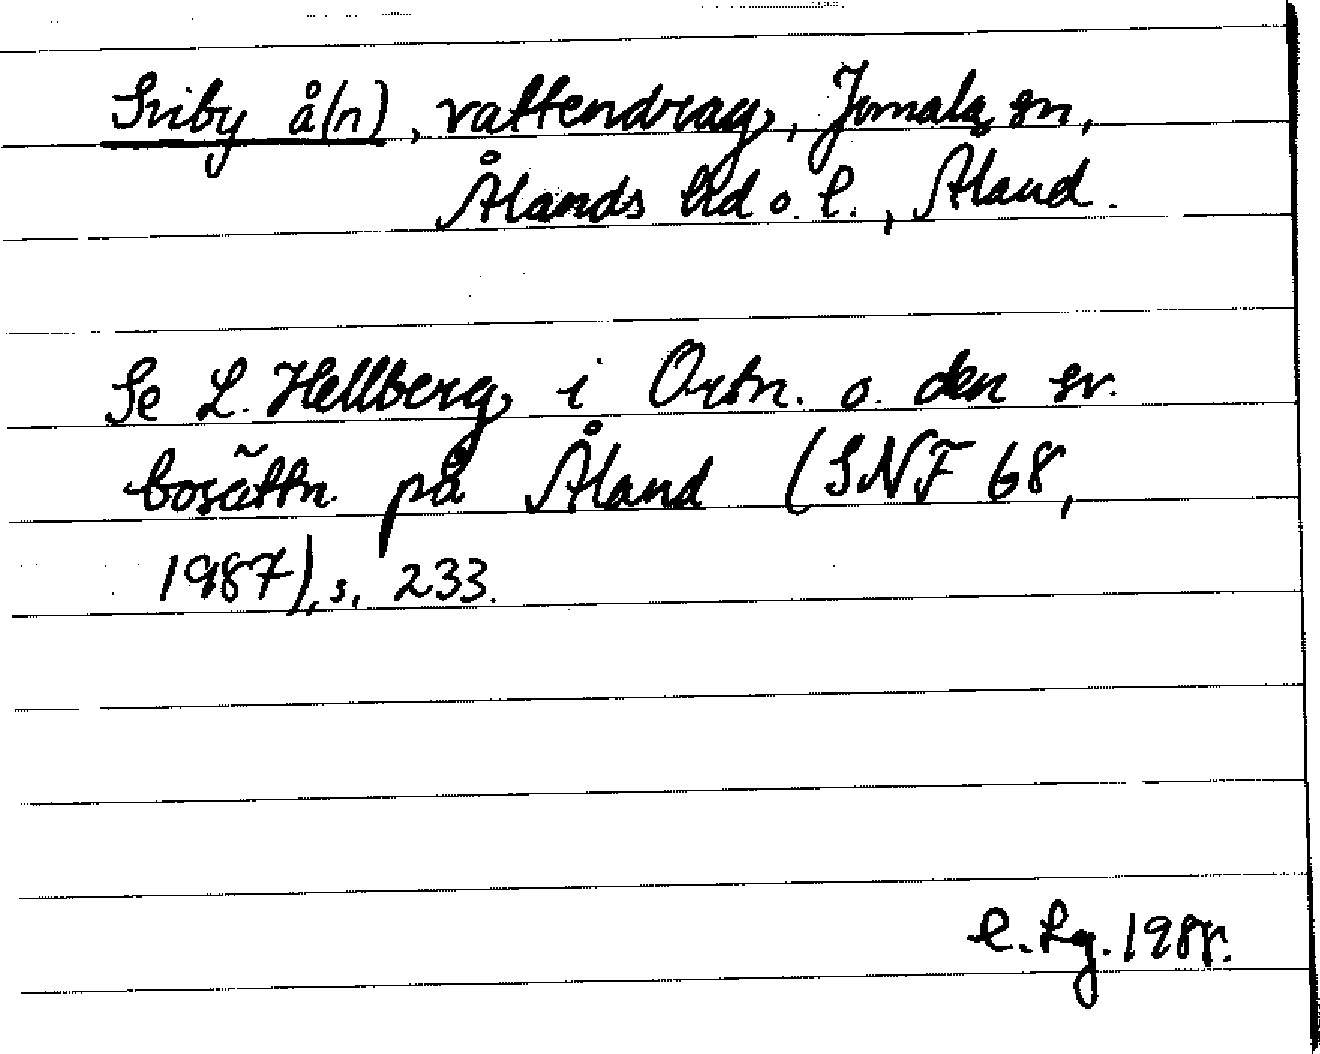 Sviby å(n), vattendrag, Jomala sn,
Ålands hd o. l., Åland.
Se L. Hellberg i Ortn. o. den sv.
bosättn. på Åland (SNF 68,
1987), s. 233.
E. Lg. 1988.